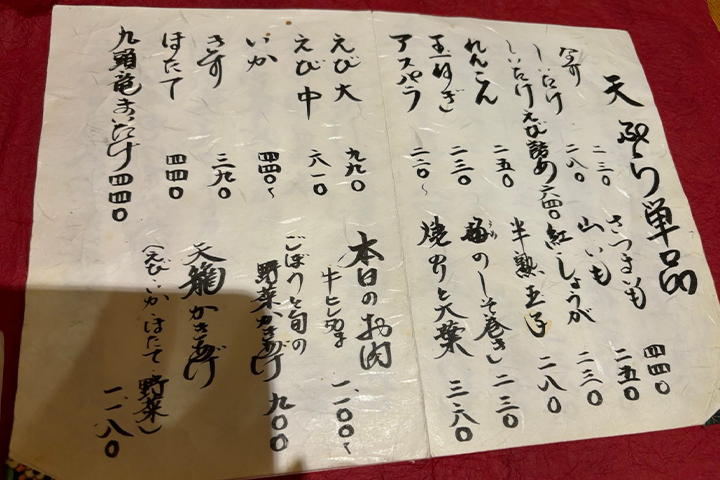 天ぷら単品
なす 二三〇
しいたけ 二八〇
しいたけえび詰め 六四〇
れんこん 二五〇
玉ねぎ 二三〇
アスパラ 二二〇~
さつまいも 四四〇
山いも 二五〇
紅しょうが 二三〇
半熟玉子 二八〇
梅のしそ巻き 二三〇
焼のりと大葉 三六〇
えび大 九九〇
えび中 六一〇
いか 四四〇~
きす 三九〇
ほたて 四四〇
九頭竜まいたけ 四四〇
本日のお肉
牛ヒレ 一、一〇〇~
ごぼうと旬の
野菜かきあげ 九〇〇
天籠かきあげ
(えび・いか・ほたて・野菜) 一、一八〇